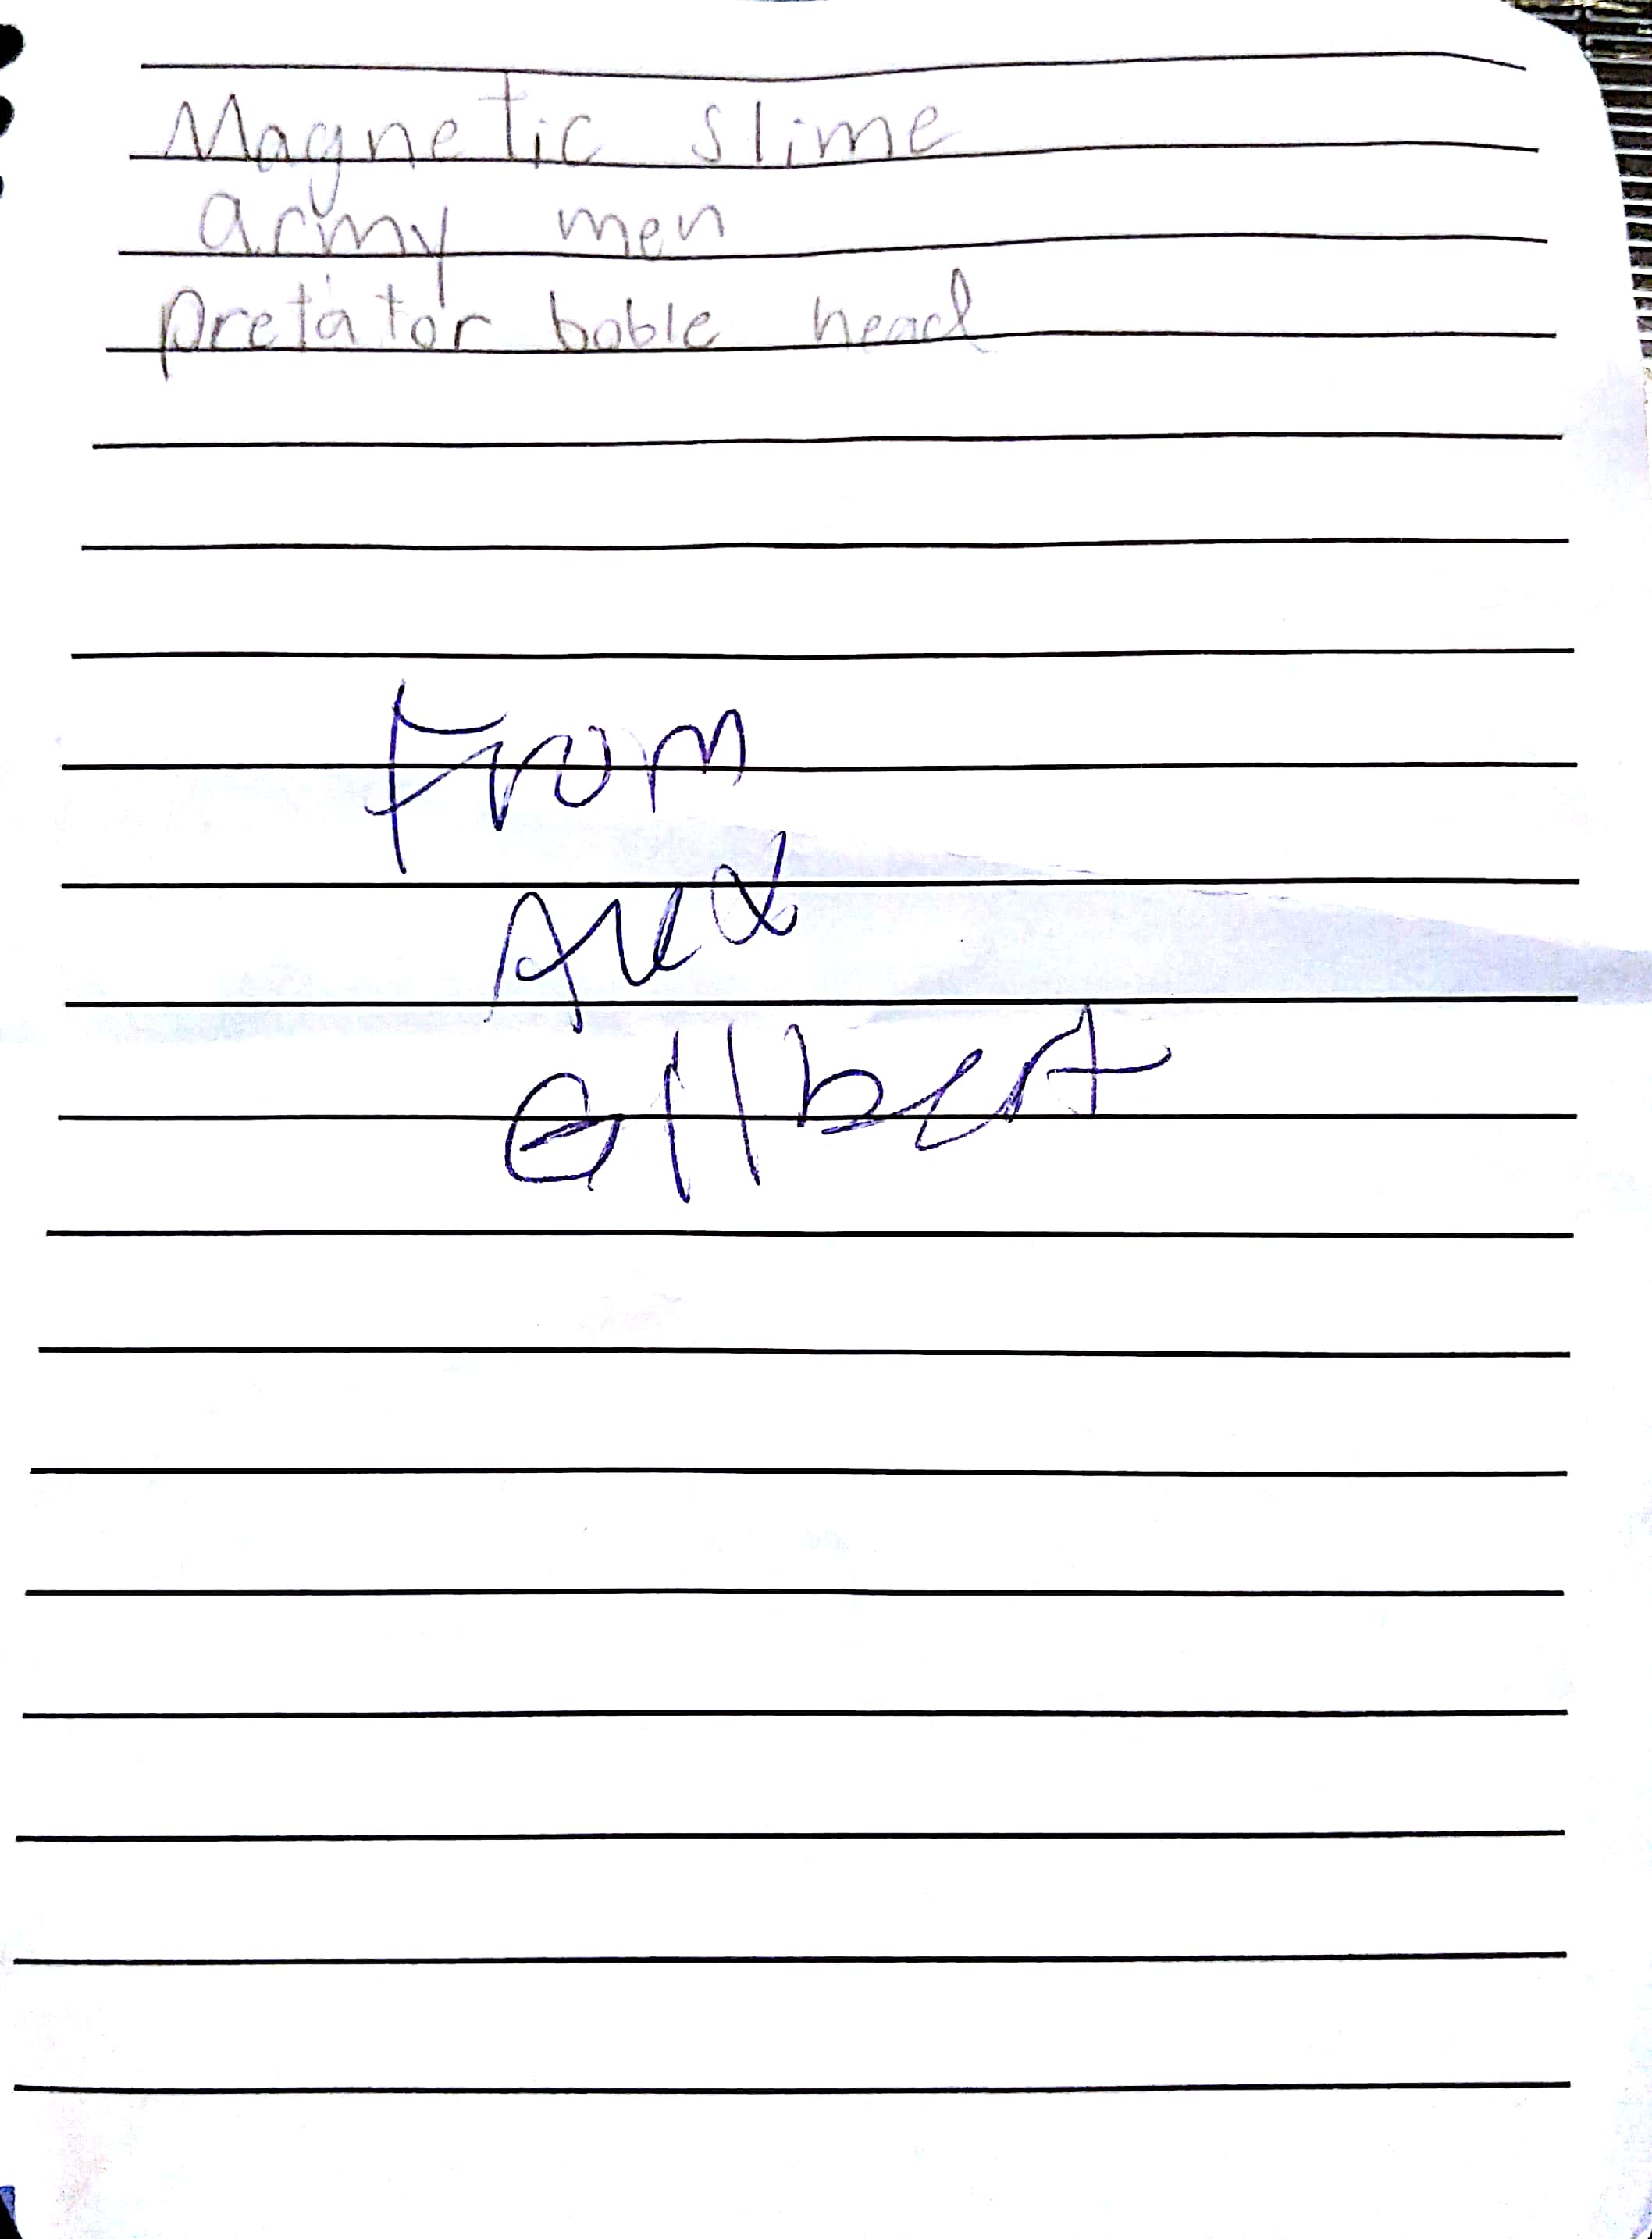 Magnetic slime
army men
pretator boble head
From